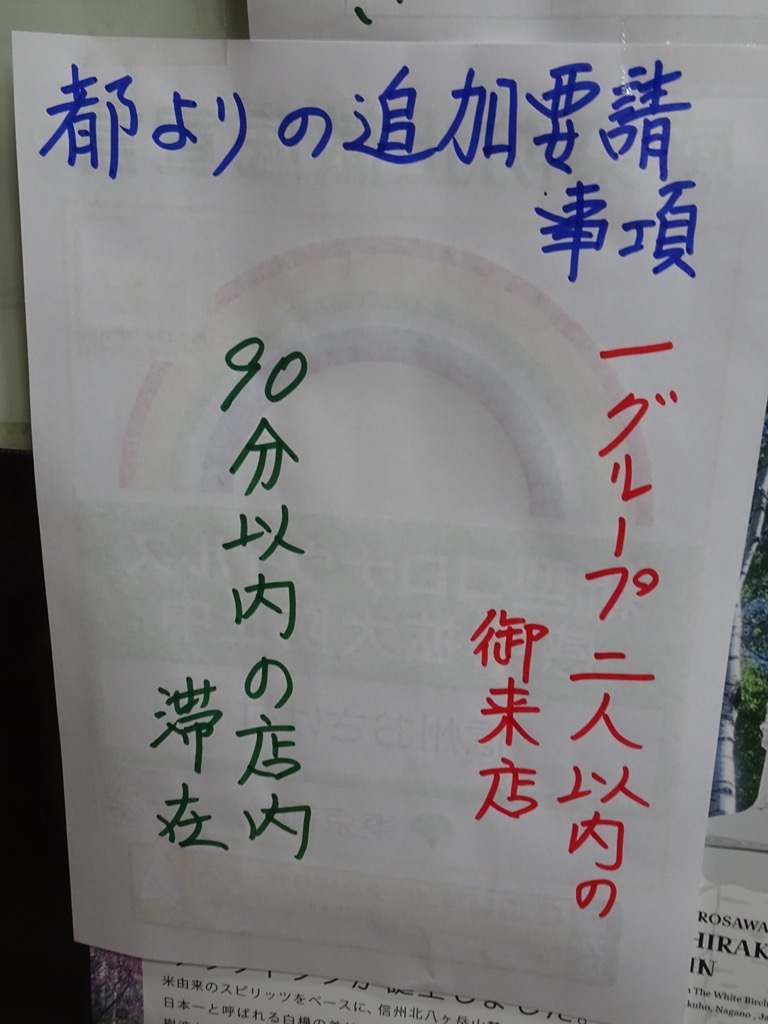 都よりの追加要請
事項
一グループ二人以内の
御来店
90分以内の店内
滞在
米由来のスピリッツをベースに、信州北八ヶ岳山
日本一と呼ばれる白樺の
ROSAWA
HIRAK
IN
The White Birch
Nagano